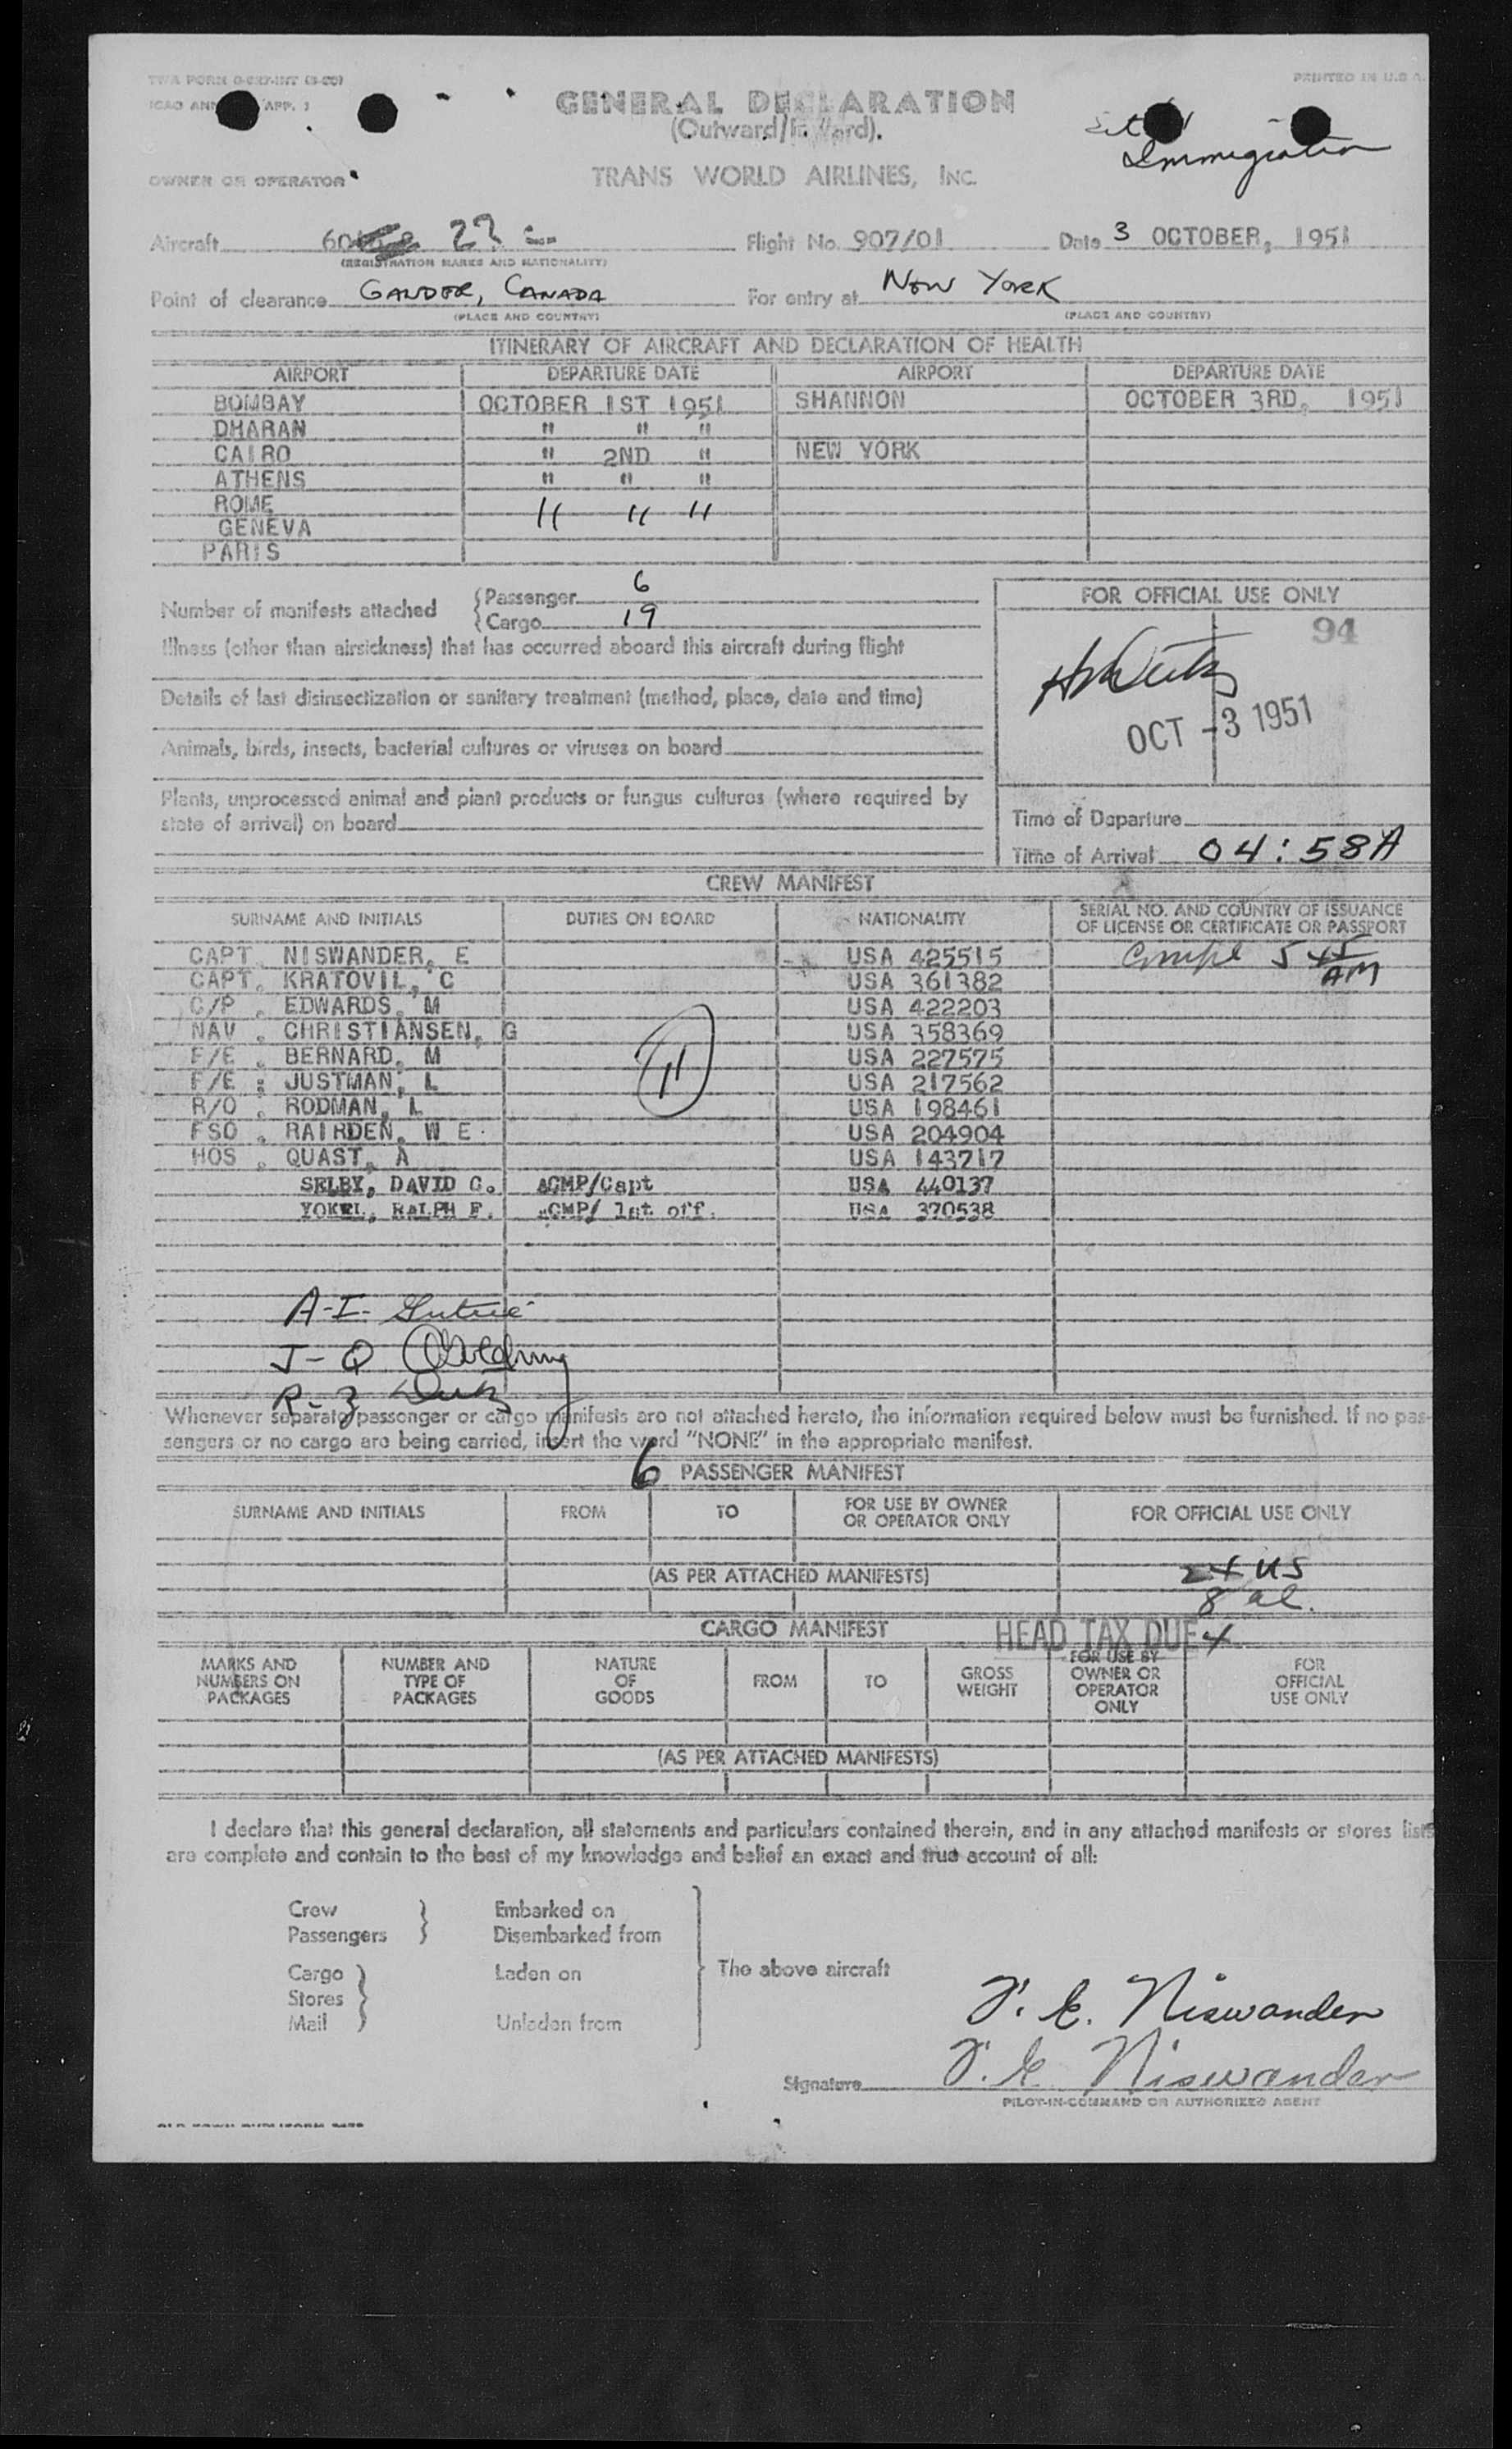 TWA FORM
PRINTED IN U.S.A.
(ICAO APP. )
GENERAL DECLARATION
(Outward/Inward).
Immigration
OWNER OR OPERATOR
TRANS WORLD AIRLINES, INC.
Aircraft 60 Flight No. 907/01 Date 3 OCTOBER, 1951
(REGISTRATION MARKS AND NATIONALITY)
Point of clearance GANDER, CANADA For entry at NEW YORK
(PLACE AND COUNTRY) (PLACE AND COUNTRY)
ITINERARY OF AIRCRAFT AND DECLARATION OF HEALTH
AIRPORT DEPARTURE DATE AIRPORT DEPARTURE DATE
BOMBAY OCTOBER 1ST 1951 SHANNON OCTOBER 3RD, 1951
DHARAN " " "
CAIRO " 2ND " NEW YORK
ATHENS " " "
ROME " " "
GENEVA
PARIS
Number of manifests attached {Passenger 6
{Cargo 19
Illness (other than airsickness) that has occurred aboard this aircraft during flight
Details of last disinsectization or sanitary treatment (method, place, date and time)
Animals, birds, insects, bacterial cultures or viruses on board
Plants, unprocessed animal and plant products or fungus cultures (where required by
state of arrival) on board
FOR OFFICIAL USE ONLY
94
OCT -3 1951
Time of Departure
Time of Arrival 04:58A
CREW MANIFEST
SURNAME AND INITIALS DUTIES ON BOARD NATIONALITY SERIAL NO. AND COUNTRY OF ISSUANCE
OF LICENSE OR CERTIFICATE OR PASSPORT
CAPT. NISWANDER, E USA 425515 Compl 5 45
AM
CAPT. KRATOVIL, C USA 361382
C/P. EDWARDS, M USA 422203
NAV. CHRISTIANSEN, G USA 358369
F/E. BERNARD, M USA 227575
F/E. JUSTMAN, L USA 217562
11
R/O. RODMAN, L USA 198461
FSO. RAIRDEN, W E USA 204904
HOS. QUAST, A USA 143717
SELBY, DAVID C. ACMP/Capt USA 440137
YOKEL, RALPH F. ACMP/ 1st off. USA 370538
A-I-
J-Q
R-Z
Whenever separate passenger or cargo manifests are not attached hereto, the information required below must be furnished. If no pas-
sengers or no cargo are being carried, insert the word "NONE" in the appropriate manifest.
6 PASSENGER MANIFEST
SURNAME AND INITIALS FROM TO FOR USE BY OWNER
OR OPERATOR ONLY FOR OFFICIAL USE ONLY
(AS PER ATTACHED MANIFESTS) 24 US
8 al.
CARGO MANIFEST HEAD TAX DUE 4
MARKS AND
NUMBERS ON
PACKAGES
NUMBER AND
TYPE OF
PACKAGES
NATURE
OF
GOODS
FROM
TO
GROSS
WEIGHT
FOR USE BY
OWNER OR
OPERATOR
ONLY
FOR
OFFICIAL
USE ONLY
(AS PER ATTACHED MANIFESTS)
I declare that this general declaration, all statements and particulars contained therein, and in any attached manifests or stores lists
are complete and contain to the best of my knowledge and belief an exact and true account of all:
Crew Embarked on
Passengers Disembarked from
Cargo Laden on The above aircraft
Stores
Mail Unladen from
F. E. Niswander
Signature F. E. Niswander
PILOT-IN-COMMAND OR AUTHORIZED AGENT